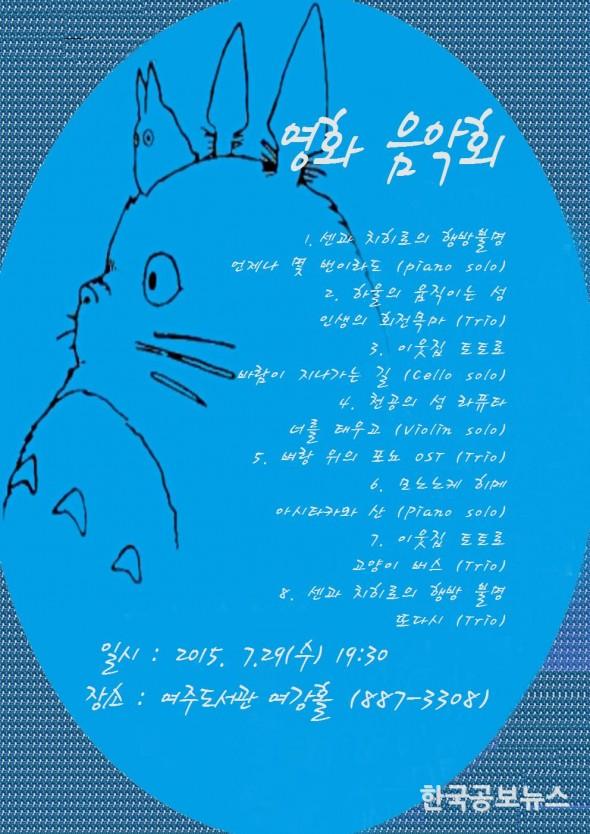 영화 음악회
1. 센과 치히로의 행방불명
언제나 몇 번이라도 (piano solo)
2. 하울의 움직이는 성
인생의 회전목마 (Trio)
3. 이웃집 토토로
바람이 지나가는 길 (Cello solo)
4. 천공의 성 라퓨타
너를 태우고 (Violin solo)
5. 벼랑 위의 포뇨 OST (Trio)
6. 모노노케 히메
아시타카와 산 (Piano solo)
7. 이웃집 토토로
고양이 버스 (Trio)
8. 센과 치히로의 행방 불명
또다시 (Trio)
일시 : 2015. 7.29(수) 19:30
장소 : 여주도서관 여강홀 (887-3308)
한국공보뉴스